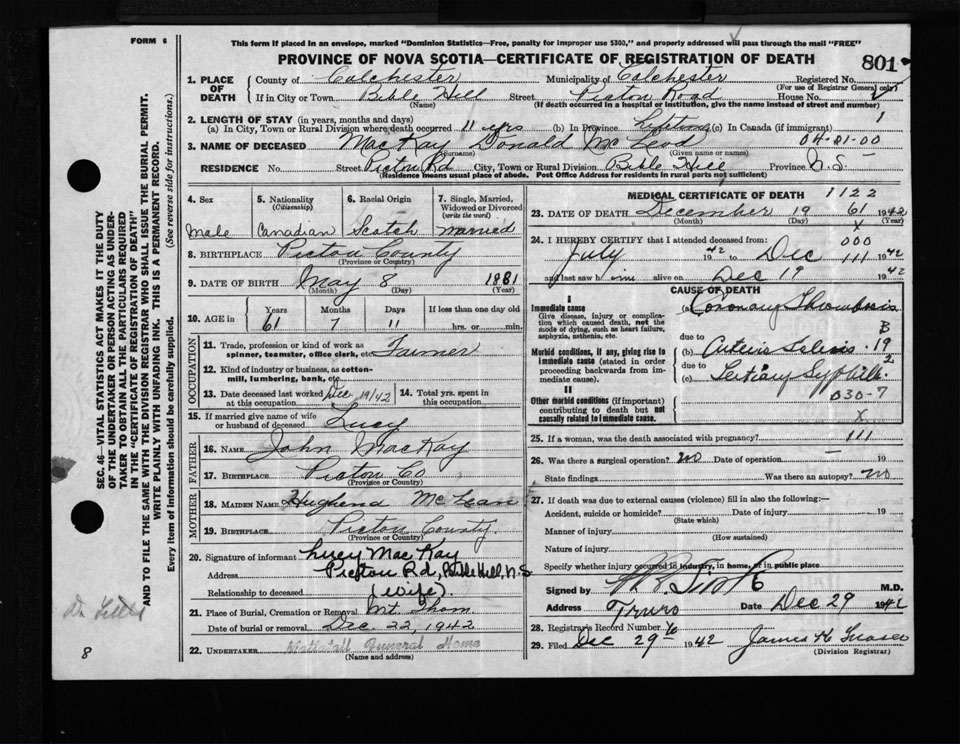 FORM 6
This form if placed in an envelope, marked "Dominion Statistics—Free, penalty for improper use $300," and properly addressed will pass through the mail "FREE"
PROVINCE OF NOVA SCOTIA—CERTIFICATE OF REGISTRATION OF DEATH
801
1. PLACE OF DEATH
County of Colchester Municipality of Colchester Registered No.
(For use of Registrar General only)
If in City or Town Bible Hill Street Picton Road House No.
(Name) (If death occurred in a hospital or institution, give the name instead of street and number)
2. LENGTH OF STAY (in years, months and days)
(a) In City, Town or Rural Division where death occurred 11 yrs (b) In Province (c) In Canada (if immigrant) 1
3. NAME OF DECEASED MacKay Donald McLeod 04-01-00
(Surname) (Given name or names)
RESIDENCE No. Street Picton Rd City, Town or Rural Division Bible Hill Province N.S.
(Residence means usual place of abode. Post Office Address for residents in rural parts not sufficient)
4. Sex
male
5. Nationality (Citizenship)
Canadian
6. Racial Origin
Scotch
7. Single, Married, Widowed or Divorced (write the word)
married
8. BIRTHPLACE Picton County
(Province or Country)
9. DATE OF BIRTH May 8 1881
(Month) (Day) (Year)
10. AGE Years Months Days If less than one day old
61 7 11 hrs. or min.
OCCUPATION
11. Trade, profession or kind of work as spinner, teamster, office clerk, etc. Farmer
12. Kind of industry or business, as cotton-mill, lumbering, bank, etc.
13. Date deceased last worked at this occupation Dec 19/42
14. Total yrs. spent in this occupation
15. If married give name of wife or husband of deceased Lucy
FATHER
16. NAME John MacKay
17. BIRTHPLACE Picton Co
(Province or Country)
MOTHER
18. MAIDEN NAME Hughena McLean
19. BIRTHPLACE Picton County.
(Province or Country)
20. Signature of informant Lucy MacKay
Address Picton Rd, Bible Hill, N.S
Relationship to deceased (wife).
21. Place of Burial, Cremation or Removal Mt Thom
Date of burial or removal Dec. 22, 1942
22. UNDERTAKER Funeral Home
(Name and address)
MEDICAL CERTIFICATE OF DEATH 1122
23. DATE OF DEATH December 19 61 1942
(Month) (Day) (Year)
X
24. I HEREBY CERTIFY that I attended deceased from: 000
July 1942 to Dec 111 1942
and last saw him alive on Dec 19 1942
CAUSE OF DEATH
I
Immediate cause
Give disease, injury or complication which caused death, not the mode of dying, such as heart failure, asphyxia, asthenia, etc.
(a) Coronary Thrombosis
B
due to
Morbid conditions, if any, giving rise to immediate cause (stated in order proceeding backwards from immediate cause).
(b) 19
due to 2
(c) Tertiary Syphilis
II
Other morbid conditions (if important) contributing to death but not causally related to immediate cause
030-7
X
25. If a woman, was the death associated with pregnancy? 111
26. Was there a surgical operation? no Date of operation — 19
State findings Was there an autopsy? no
27. If death was due to external causes (violence) fill in also the following:—
Accident, suicide or homicide? Date of injury 19
(State which)
Manner of injury
(How sustained)
Nature of injury
Specify whether injury occurred in industry, in home, or in public place
Signed by M.D.
Address Truro Date Dec 29 1942
28. Registrar's Record Number
29. Filed Dec 29 1942 James H Fraser
(Division Registrar)
SEC. 46—VITAL STATISTICS ACT MAKES IT THE DUTY OF THE UNDERTAKER OR PERSON ACTING AS UNDERTAKER TO OBTAIN ALL THE PARTICULARS REQUIRED IN THE "CERTIFICATE OF REGISTRATION OF DEATH" AND TO FILE THE SAME WITH THE DIVISION REGISTRAR WHO SHALL ISSUE THE BURIAL PERMIT.
WRITE PLAINLY WITH UNFADING INK. THIS IS A PERMANENT RECORD.
Every item of information should be carefully supplied. (See reverse side for instructions.)
8